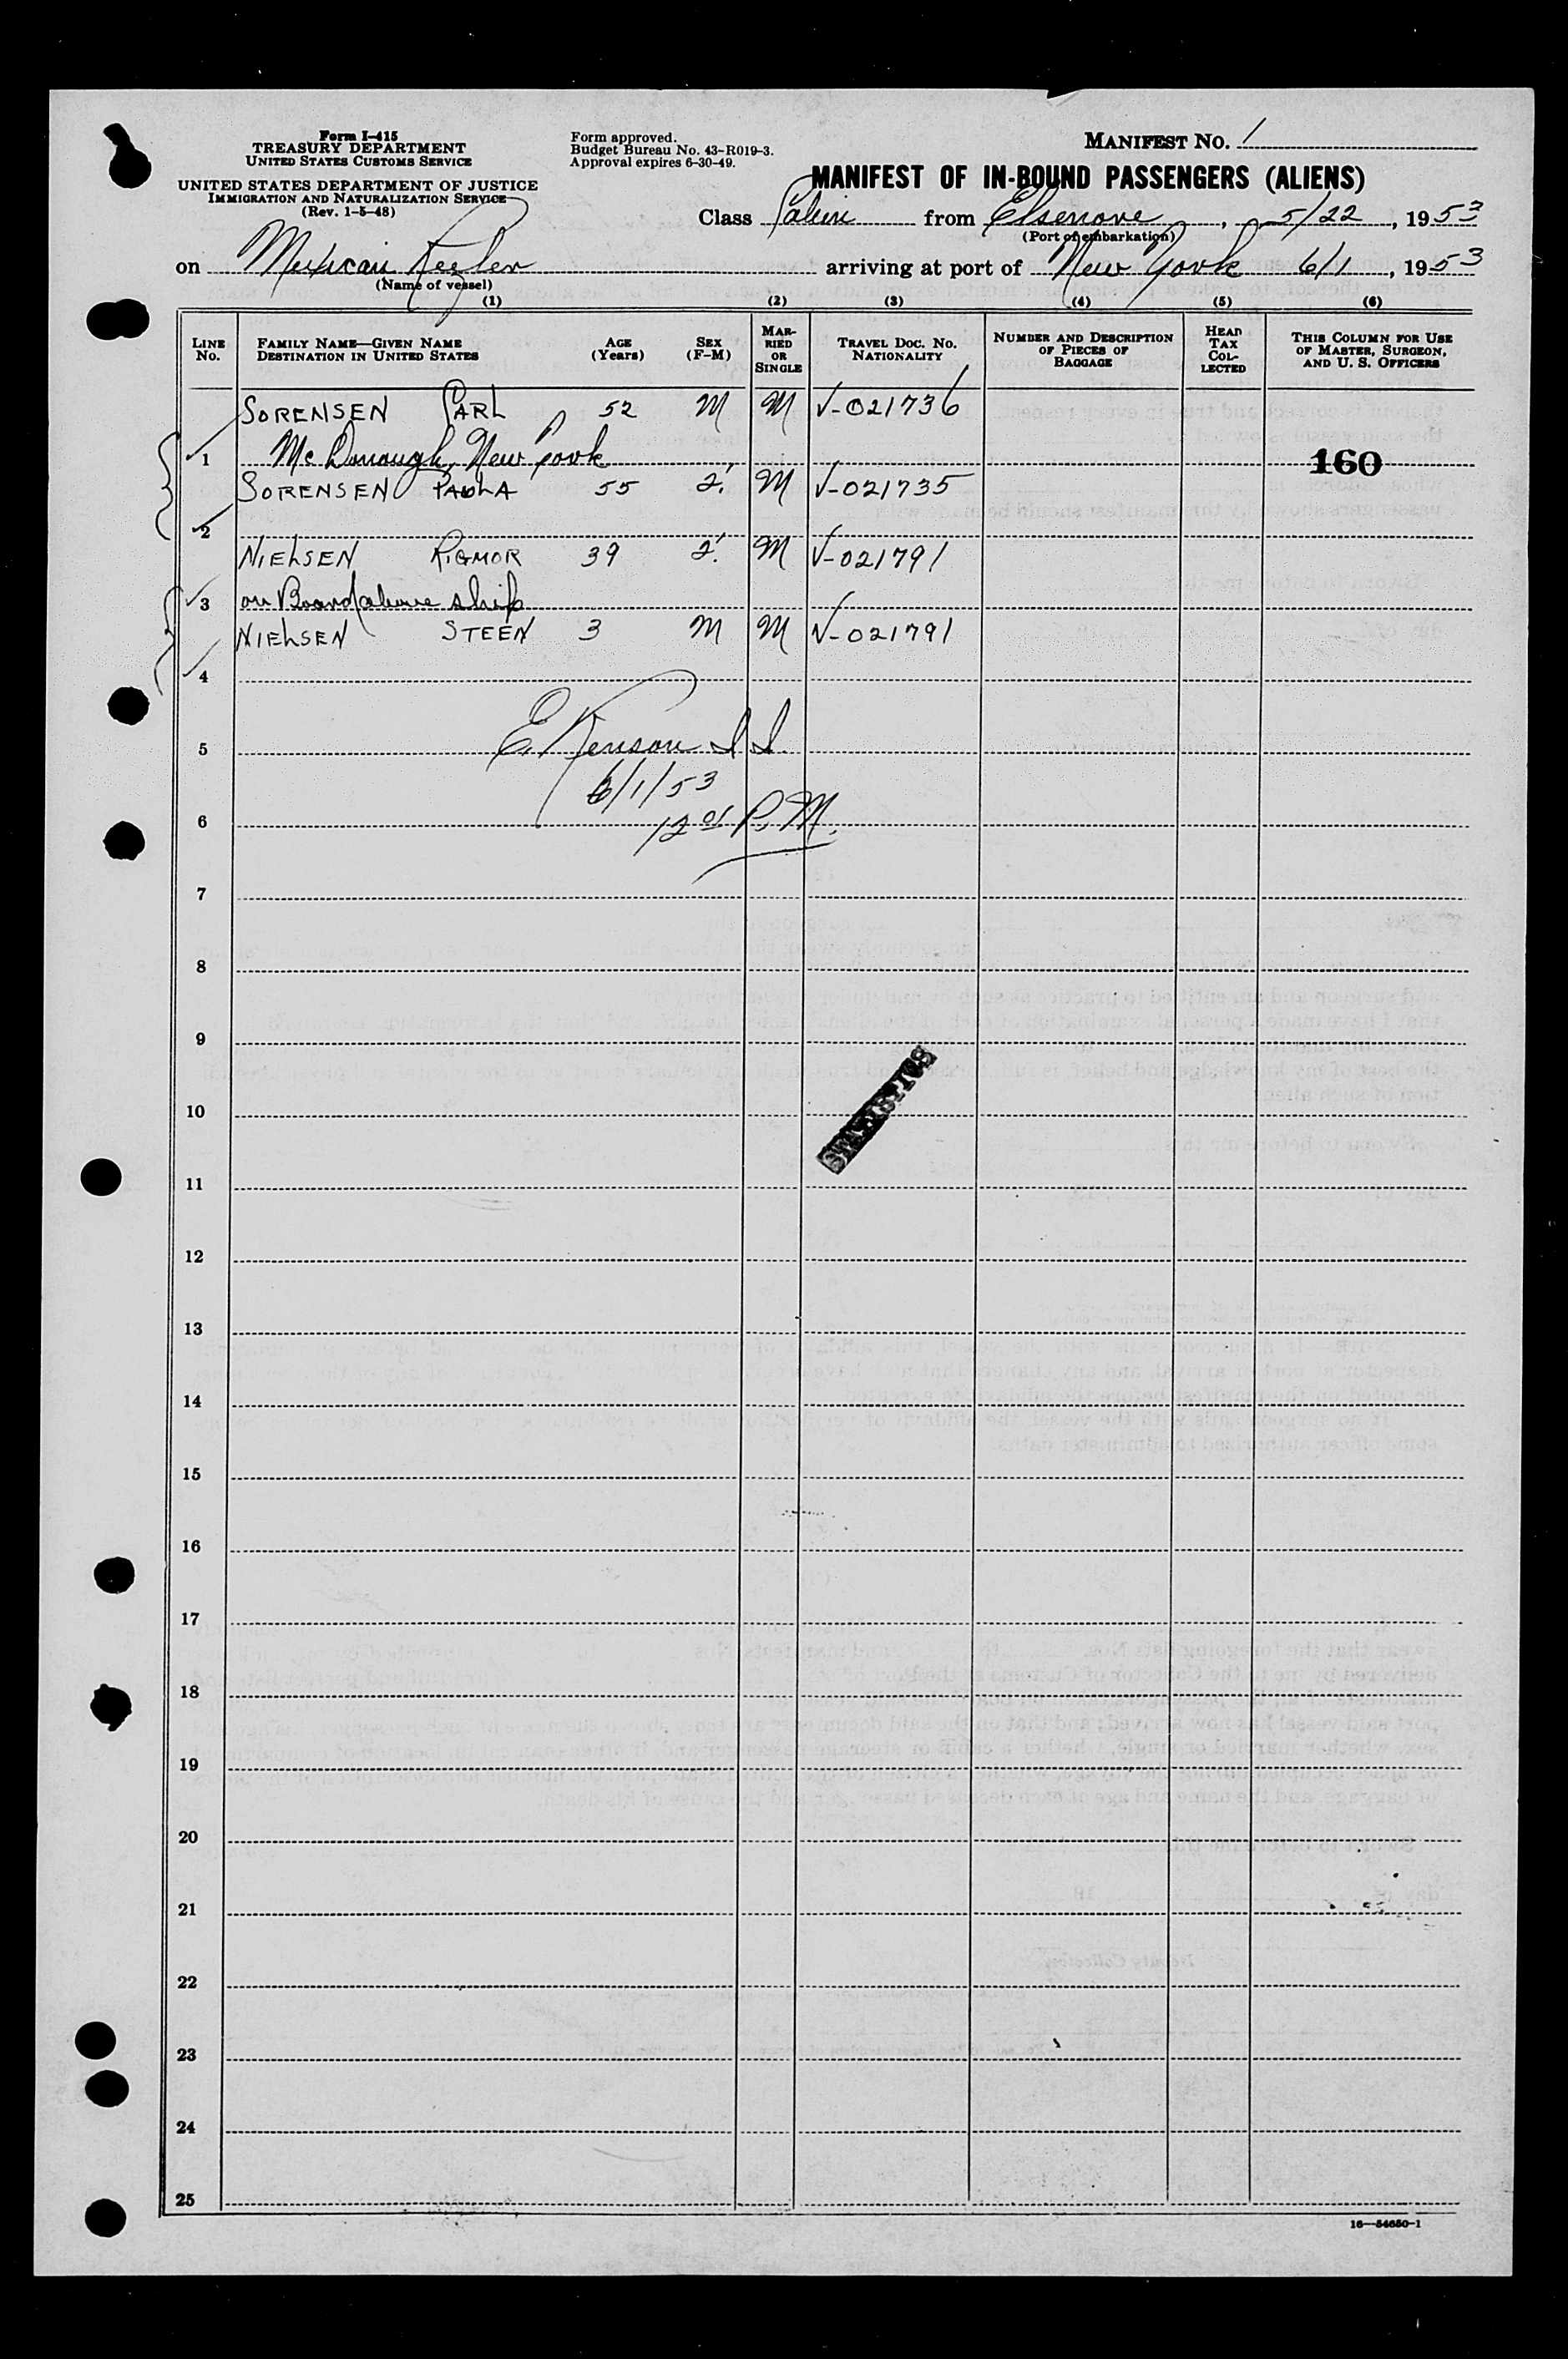 Form I-415
TREASURY DEPARTMENT
UNITED STATES CUSTOMS SERVICE
UNITED STATES DEPARTMENT OF JUSTICE
IMMIGRATION AND NATURALIZATION SERVICE
(Rev. 1-5-48)
Form approved.
Budget Bureau No. 43-R019-3.
Approval expires 6-30-49.
MANIFEST No. 1
MANIFEST OF IN-BOUND PASSENGERS (ALIENS)
Class Cabin from Elsenore, 5/22, 1953
(Port of embarkation)
on Mexican Reefer arriving at port of New York 6/1, 1953
(Name of vessel)
(1) (2) (3) (4) (5) (6)
LINE No. FAMILY NAME—GIVEN NAME DESTINATION IN UNITED STATES AGE (Years) SEX (F-M) MARRIED OR SINGLE TRAVEL DOC. NO. NATIONALITY NUMBER AND DESCRIPTION OF PIECES OF BAGGAGE HEAD TAX COLLECTED THIS COLUMN FOR USE OF MASTER, SURGEON, AND U. S. OFFICERS
SORENSEN CARL 52 M M V-021736
1 Mc Donough, New York 160
SORENSEN PAULA 55 F. M V-021735
2
NIELSEN RIGMOR 39 F. M V-021791
3 on Board above ship
NIELSEN STEEN 3 M M V-021791
4
5 E. Kenson I I
6/1/53
6 12 01 P.M.
7
8
9
STATISTICS
10
11
12
13
14
15
16
17
18
19
20
21
22
23
24
25
16—54650-1